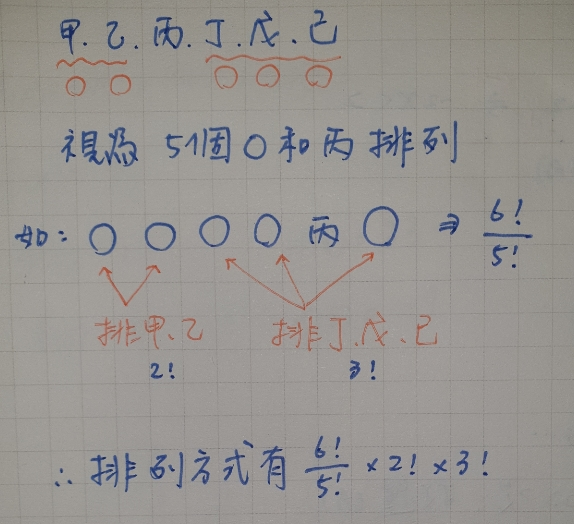 甲.乙.丙.丁.戊.己
○ ○ ○ ○ ○
視為 5個○和丙排列
如: ○ ○ ○ ○ 丙 ○ ⇒ 6!/5!
排甲.乙 排丁.戊.己
2! 3!
∴ 排列方式有 6!/5! × 2! × 3!